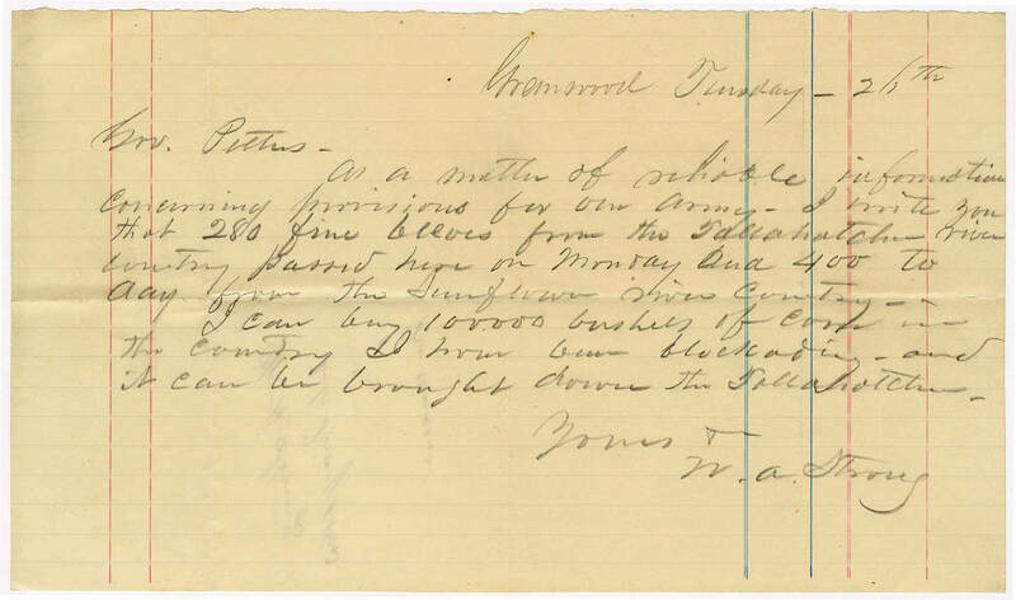 Greenwood Tuesday - 26th
Gov. Pettus -
As a matter of reliable information
concerning provisions for our army - I write you
that 280 fine beeves from the Tallahatchie river
country passed here on Monday and 400 to
day from the Sunflower river country - -
I can buy 100000 bushels of corn in
the country I have been blockading - and
it can be brought down the Tallahatchie -
Yours &c
W. A. Strong